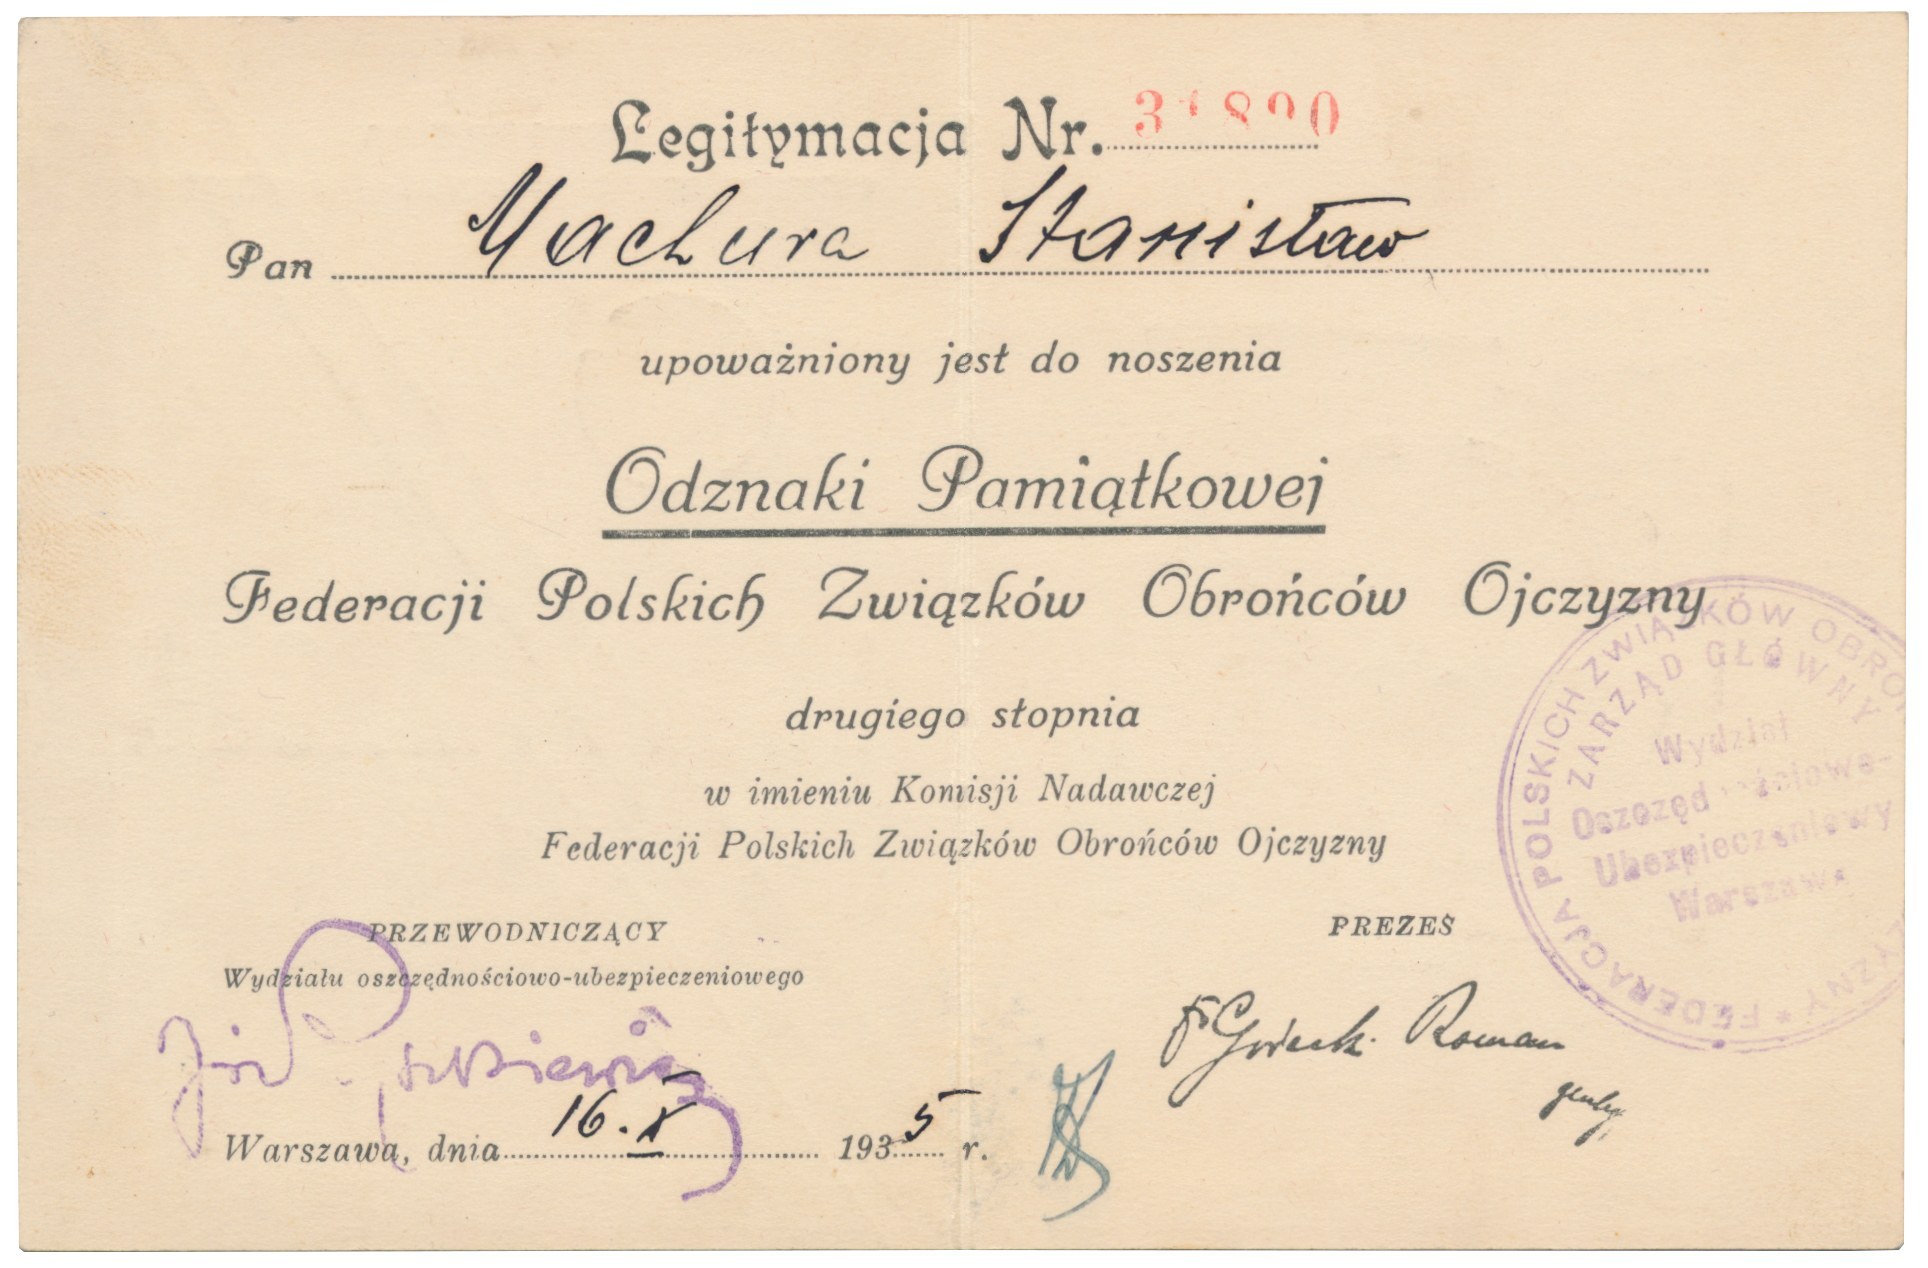 Legitymacja Nr.
Pan Machura Stanisław
upoważniony jest do noszenia
Odznaki Pamiątkowej
Federacji Polskich Związków Obrońców Ojczyzny
drugiego stopnia
w imieniu Komisji Nadawczej
Federacji Polskich Związków Obrońców Ojczyzny
PRZEWODNICZĄCY
Wydziału oszczędnościowo-ubezpieczeniowego
PREZES
Górecki Roman
Warszawa, dnia 16.X 1935 r.
FEDERACJA POLSKICH ZWIĄZKÓW
ZARZĄD GŁÓWNY
Wydział
Ubezpieczeniowy
Warszawa